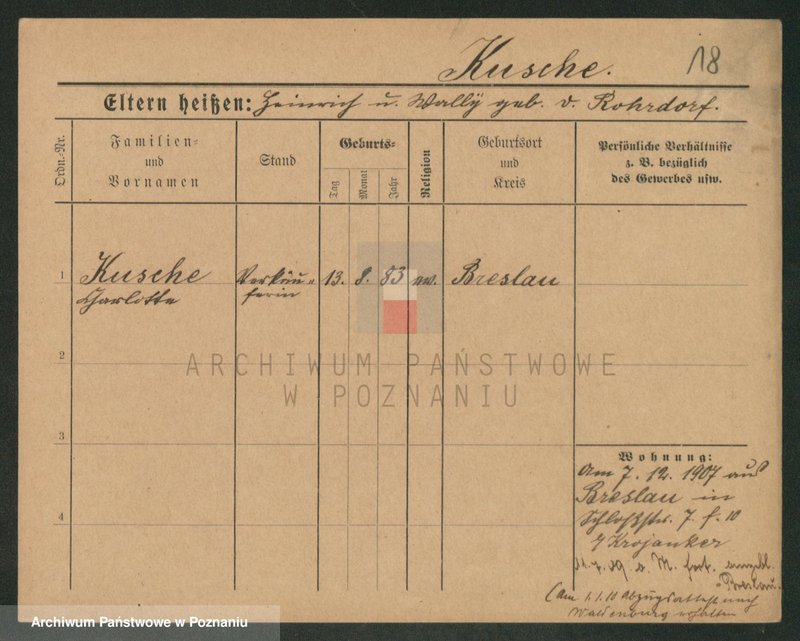 Kusche. 18
Eltern heißen: Heinrich u. Wally geb. v. Rohrdorf.
Ordn.-Nr.
Familien-
und
Vornamen
Stand
Geburts-
Tag
Monat
Jahr
Religion
Geburtsort
und
Kreis
Persönliche Verhältnisse
z. B. bezüglich
des Gewerbes usw.
1 Kusche Verkäu- 13. 8. 83 ev. Breslau
Charlotte ferin
ARCHIWUM PAŃSTWOWE
W POZNANIU
2
3
4
Wohnung:
Am 7. 12. 1907 aus
Breslau in
Schloßstr. 7. f. 10
b/ Krojanker
09 a. M. fort.
Breslau.
(Am 1.1.10 Abzugsattest nach
Waldenburg erhalten
Archiwum Państwowe w Poznaniu